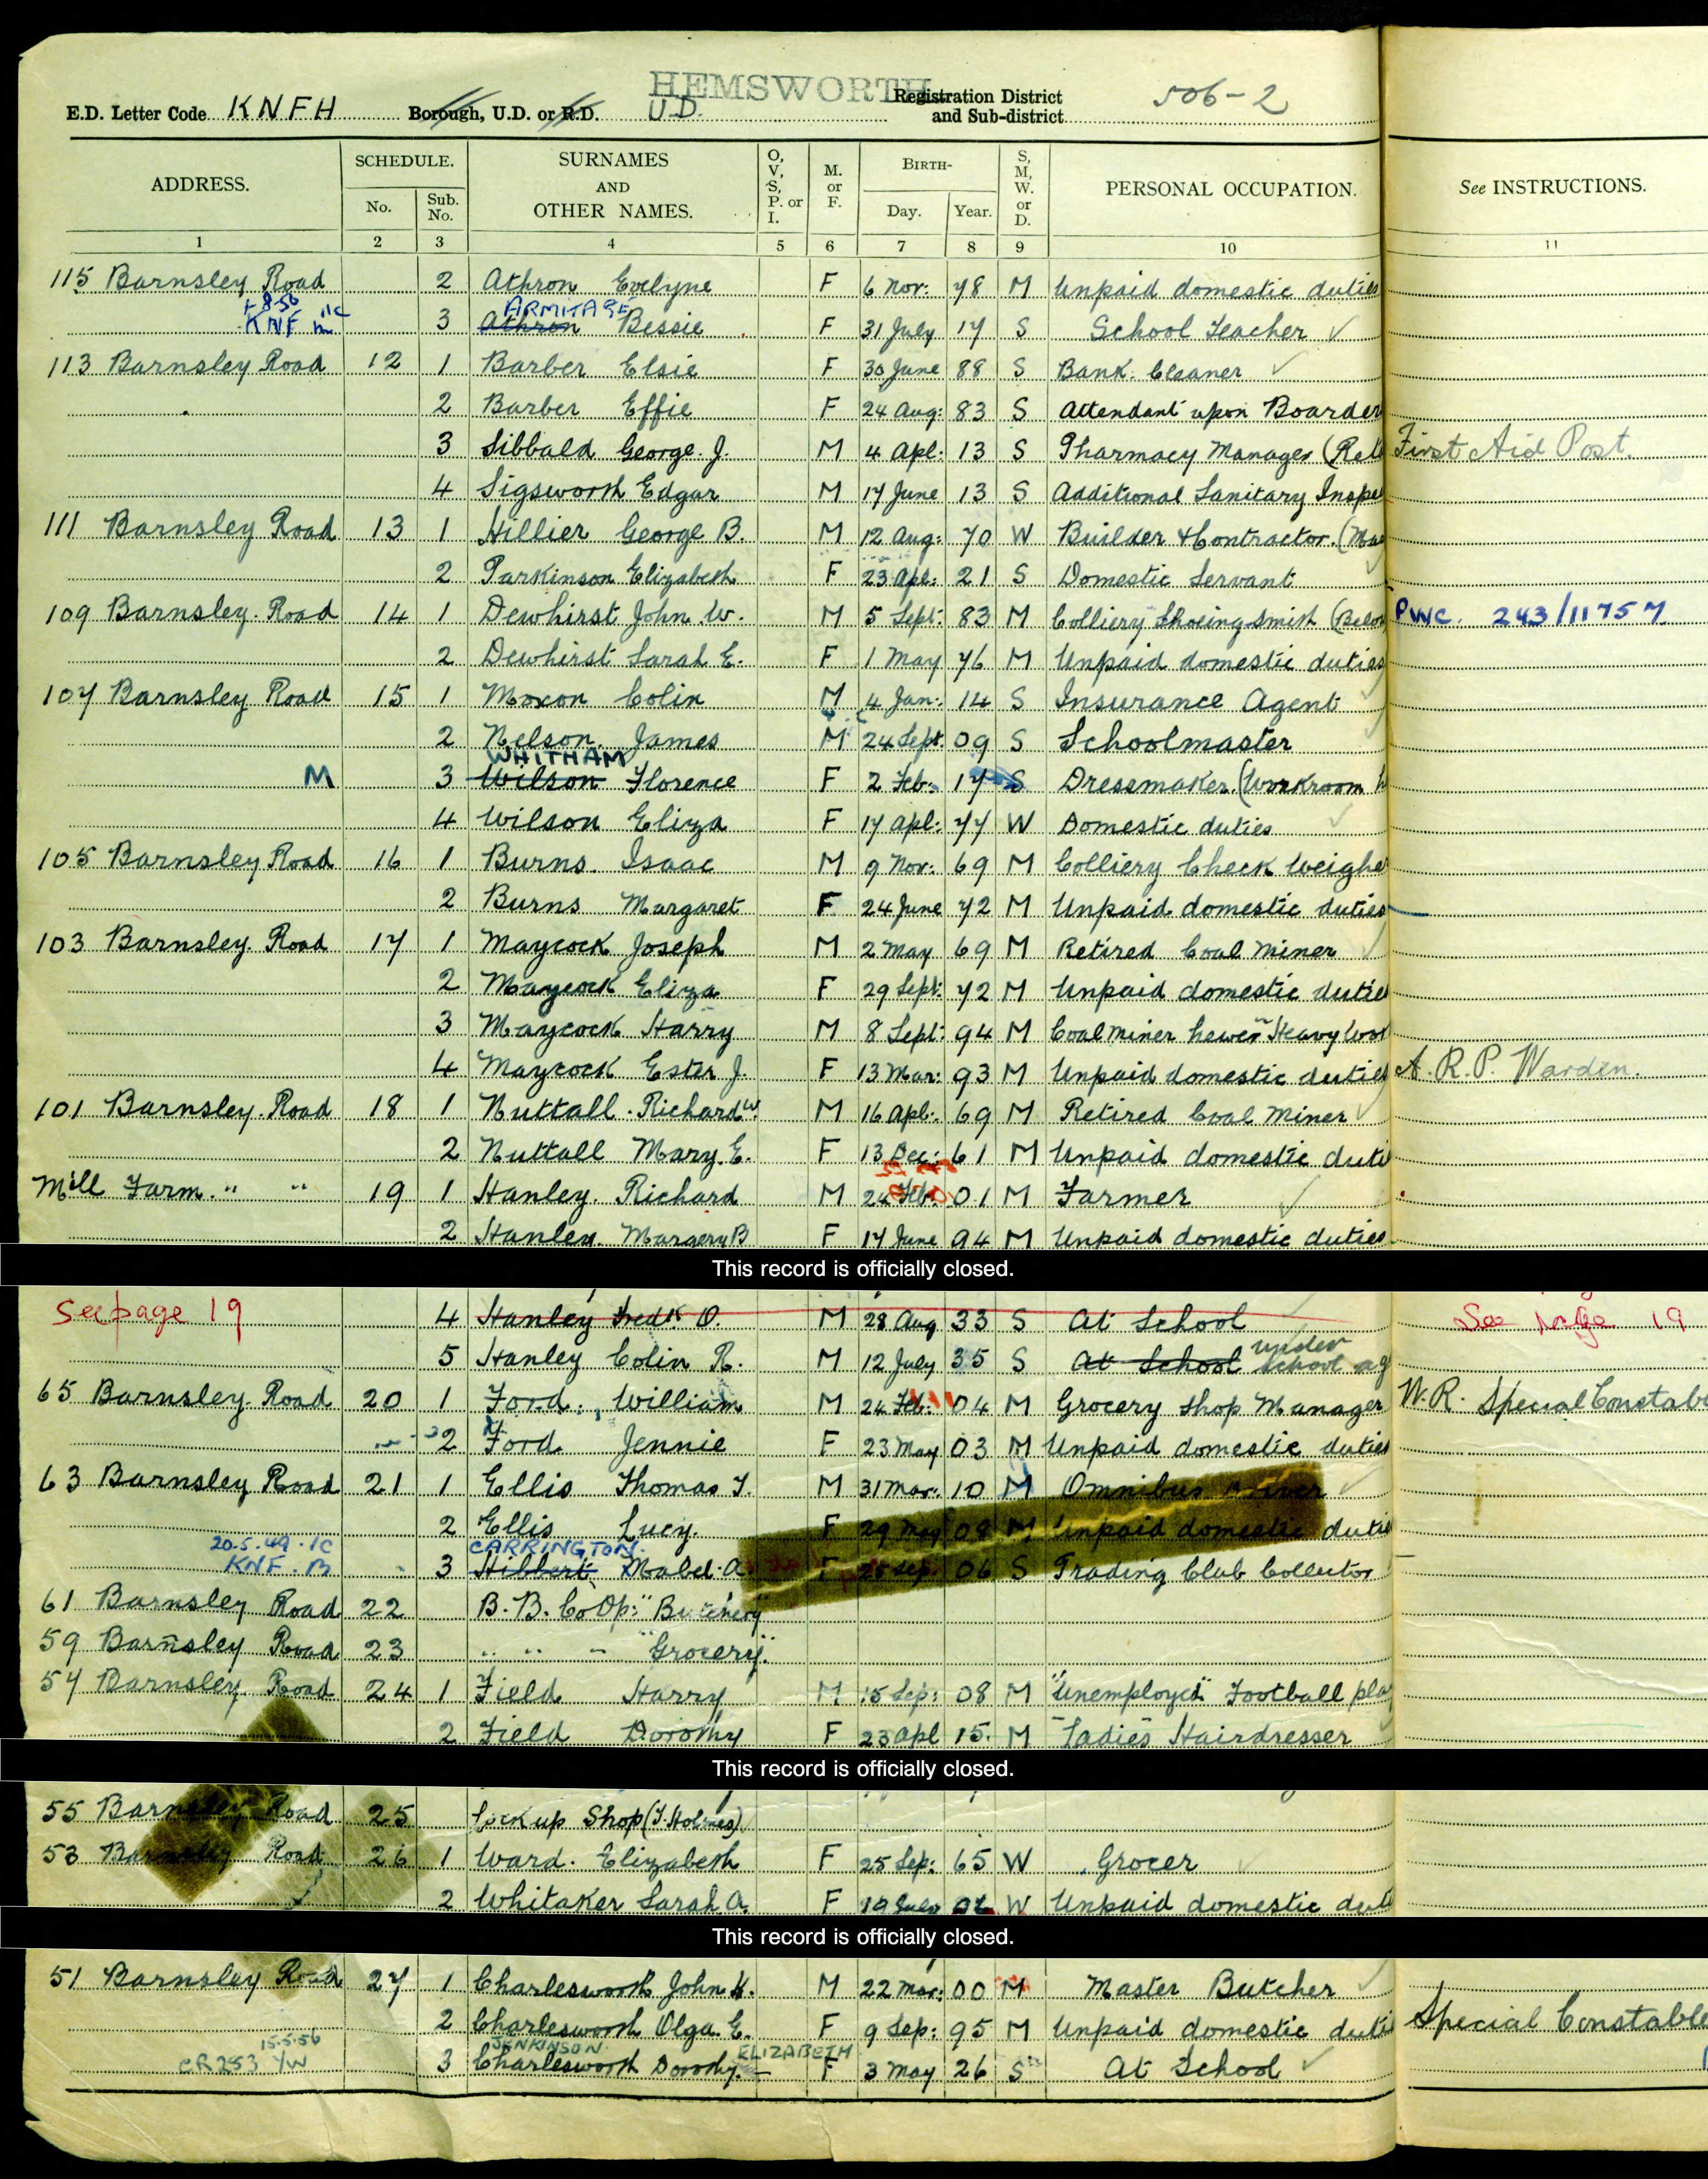 HEMSWORTH
E.D. Letter Code KNFH Borough, U.D. or R.D. U.D. Registration District and Sub-district 506-2
ADDRESS. SCHEDULE. No. Sub. No. SURNAMES AND OTHER NAMES. O, V, S, P. or I. M. or F. BIRTH- Day. Year. S, M, W. or D. PERSONAL OCCUPATION. See INSTRUCTIONS.
1 2 3 4 5 6 7 8 9 10 11
115 Barnsley Road 2 Athron Evelyne F 6 Nov: 78 M Unpaid domestic duties
ARMITAGE
KNF 3 Athron Bessie F 31 July 17 S School Teacher ✓
113 Barnsley Road 12 1 Barber Elsie F 30 June 88 S Bank Cleaner ✓
2 Barber Effie F 24 Aug: 83 S Attendant upon Boarder
3 Sibbald George J. M 4 Apl: 13 S Pharmacy Manager (Reta First Aid Post.
4 Sigsworth Edgar M 17 June 13 S Additional Sanitary Inspe
111 Barnsley Road 13 1 Hillier George B. M 12 Aug: 70 W Builder & Contractor (Mas
2 Parkinson Elizabeth F 23 Apl: 21 S Domestic Servant
109 Barnsley Road 14 1 Dewhirst John W. M 5 Sept: 83 M Colliery Shoeing Smith (Belo PWC. 243/11757
2 Dewhirst Sarah E. F 1 May 76 M Unpaid domestic duties
107 Barnsley Road 15 1 Moxon Colin M 4 Jan: 14 S Insurance Agent
2 Nelson James M 24 Sept. 09 S Schoolmaster
WHITHAM
M 3 Wilson Florence F 2 Feb: 17 S Dressmaker (Workroom
4 Wilson Eliza F 17 Apl: 77 W Domestic duties ✓
105 Barnsley Road 16 1 Burns Isaac M 9 Nov: 69 M Colliery Check Weighe
2 Burns Margaret F 24 June 72 M Unpaid domestic duties
103 Barnsley Road 17 1 Maycock Joseph M 2 May 69 M Retired Coal Miner ✓
2 Maycock Eliza F 29 Sept: 72 M Unpaid domestic duties
3 Maycock Harry M 8 Sept: 94 M Coal miner hewer Heavy Wor
4 Maycock Ester J. F 13 Mar: 93 M Unpaid domestic duties A.R.P. Warden.
101 Barnsley Road 18 1 Nuttall Richard W. M 16 Apl: 69 M Retired Coal Miner ✓
2 Nuttall Mary E. F 13 Dec: 61 M Unpaid domestic duti
Mill Farm " " 19 1 Hanley Richard M 24 Feb: 01 M Farmer ✓
2 Hanley Margery B F 17 June 94 M Unpaid domestic duties
This record is officially closed.
See page 19 4 Hanley Fredk O. M 28 Aug 33 S At School See page 19
under
5 Hanley Colin R. M 12 July 35 S At School school ag
65 Barnsley Road 20 1 Ford William M 24 Feb: 04 M Grocery Shop Manager W.R. Special Constab
2 Ford Jennie F 23 May 03 M Unpaid domestic duties
63 Barnsley Road 21 1 Ellis Thomas T. M 31 Mar: 10 M Omnibus Driver ✓
2 Ellis Lucy. F 29 May 08 M Unpaid domestic dutie
20.5.49 CARRINGTON
KNF 3 Hibbert Mabel A. F 25 Sep. 06 S Trading Club Collector
61 Barnsley Road 22 B.B. CoOp: "Butchery"
59 Barnsley Road 23 " " - "Grocery".
57 Barnsley Road 24 1 Field Harry M 15 Sep: 08 M "Unemployed" Football pla
2 Field Dorothy F 23 Apl 15. M Ladies Hairdresser
This record is officially closed.
55 Barnsley Road 25 Lock up Shop (T. Holmes)
53 Barnsley Road 26 1 Ward. Elizabeth F 25 Sep: 65 W Grocer ✓
2 Whitaker Sarah A. F 19 W Unpaid domestic duti
This record is officially closed.
51 Barnsley Road 27 1 Charlesworth John H. M 22 Mar: 00 M Master Butcher ✓
2 Charlesworth Olga E. F 9 Sep: 95 M Unpaid domestic duti Special Constable
15.5.56 JENKINSON ELIZABETH
CR253 YW 3 Charlesworth Dorothy. F 3 May 26 S At School ✓